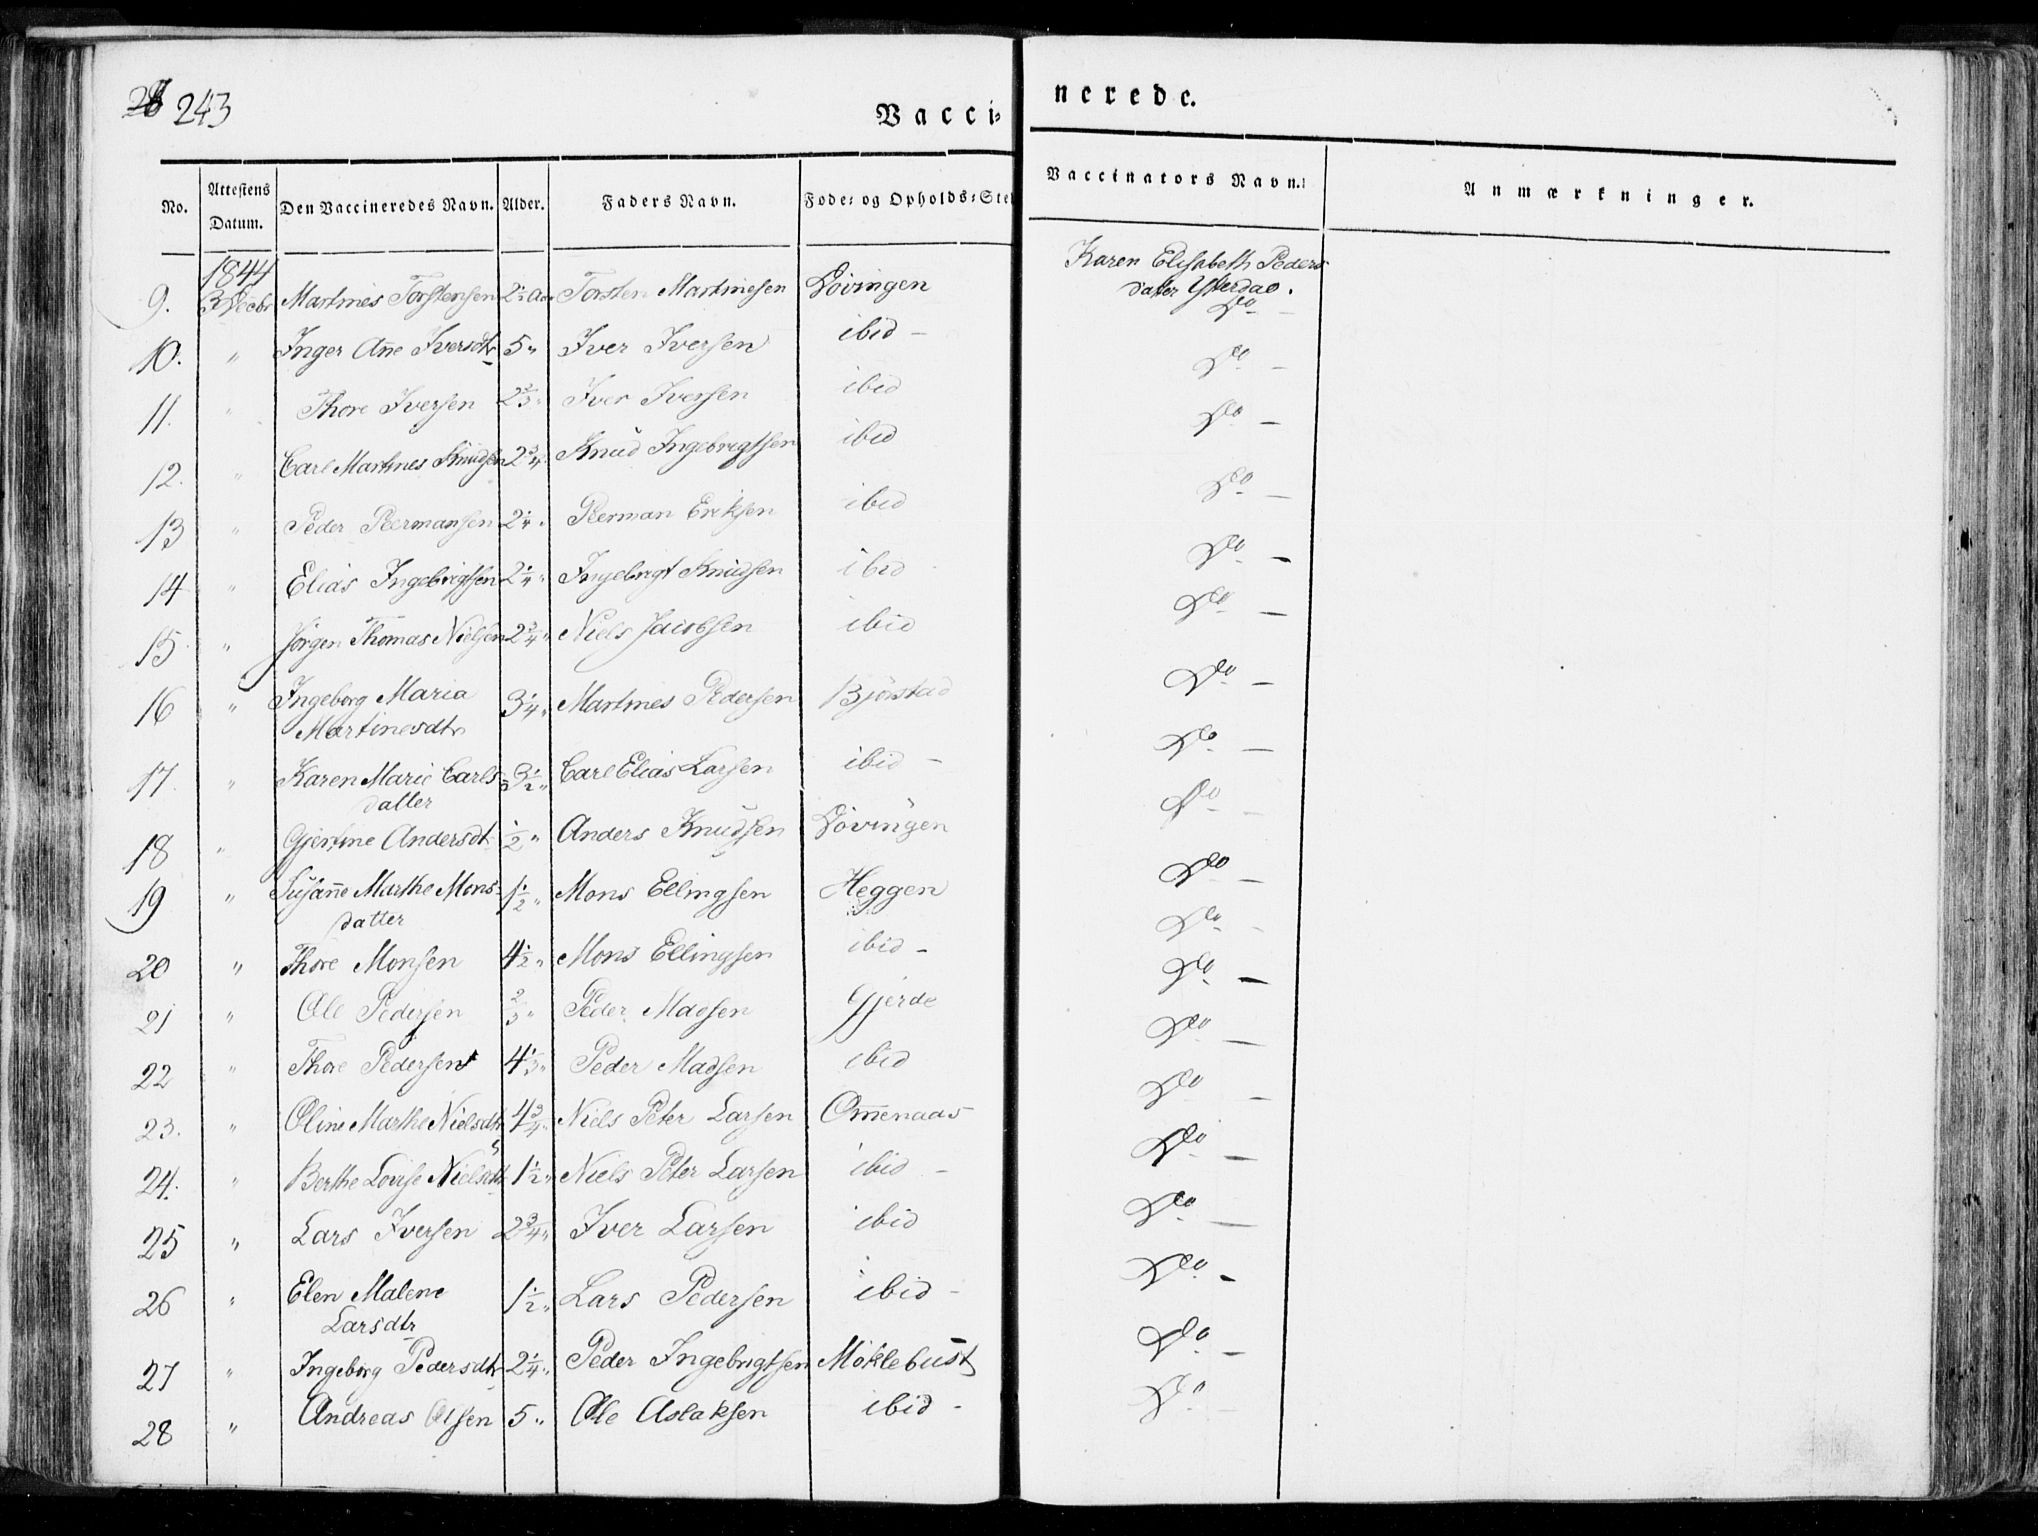 243
Vacci-
nerede.
No.
Attestens Datum.
Den Vaccineredes Navn.
Alder.
Faders Navn.
Føde- og Opholds-Sted
Vaccinators Navn.
Anmærkninger.
1844
9. 3 Decbr Martines Torstensen 2½ Torsten Martinesen Lövingen Karen Elisabeth Peders
datter Ytterdao.
Do
10. " Inger Ane Iversdtr 5 " Iver Iversen ibid - Do -
11. " Thore Iversen 2⅔ " Iver Iversen ibid Do -
12. " Carl Martines Knudsen 2¾ Knud Ingebrigtsen ibid Do -
13 " Peder Peermansen 2¼ " Peerman Eriksen ibid Do -
14 " Elias Ingebrigtsen 2¼ " Ingebrigt Knudsen ibid Do -
15 " Jörgen Thomas Nielsen 2¾ " Niels Jacobsen ibid Do -
16 " Ingeborg Maria 3¼ " Martines Pedersen Bjørstad Do -
Martinesdtr
17. " Karen Marie Carls- 3½ " Carl Elias Larsen ibid - Do -
datter
18 " Gjertine Andersdt ½ " Anders Knudsen Lövingen Do -
19 " Susane Marthe Mons- 1½ " Mons Ellingsen Heggen Do -
datter
20 " Thore Monsen 4½ " Mons Ellingsen ibid - Do -
21 " Ole Pedersen ⅔ " Peder Madsen Gjerde Do -
22 " Thore Pedersen 4⅓ " Peder Madsen ibid Do -
23. " Oline Marthe Nielsdtr 4¾ " Niels Peter Larsen Omenaas Do -
24. " Berthe Lovise Nielsdtr 1½ " Niels Peter Larsen ibid - Do -
25 " Lars Iversen 2¾ " Iver Larsen ibid Do -
26 " Elen Malene 1½ " Lars Pedersen ibid - Do -
Larsdtr
27 " Ingeborg Pedersdtr 2¼ " Peder Ingebrigtsen Möklebust Do -
28 " Andreas Olsen 5 " Ole Aslaksen ibid - Do -